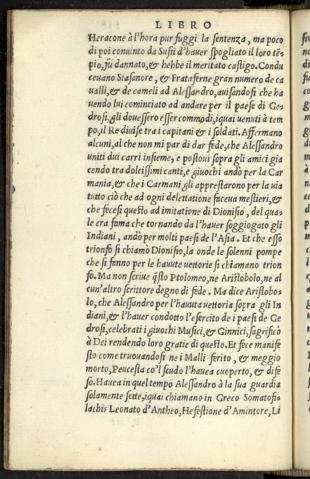 LIBRO
Heracone à l'hora pur fuggi la sentenza, ma poco
di poi conuinto da Susii d'hauer spogliato il loro tē-
pio, fu dannato, & hebbe il meritato castigo. Condu
ceuano Stasanore, & Frataferne gran numero de ca
ualli, & de cameli ad Alessandro, auisandosi che ha
uendo lui cominciato ad andare per il paese di Ge-
drosi, gli douessero esser commodi, iquai uenuti à tem
po, il Re diuise tra i capitani & i soldati. Affermano
alcuni, al che non mi par di dar fede, che Alessandro
uniti dui carri insieme, e postoui sopra gli amici gia
cendo tra dolcissimi canti, e giuochi andò per la Car
mania, & che i Carmani gli apprestarono per la uia
tutto ciò che ad ogni delettatione faceua mestieri, &
che fece si questo ad imitatione di Dionisio, del qua-
le era fama che tornando da l'hauer soggiogato gli
Indiani, andò per molti paesi de l'Asia. Et che esso
trionfo si chiamò Dionisio, la onde le solenni pompe
che si fanno per le hauute uettorie si chiamano trion
fo. Ma non scriue q̃sto Ptolomeo, ne Aristobolo, ne al
cun'altro scrittore degno di fede. Ma dice Aristobo-
lo, che Alessandro per l'hauuta uettoria sopra gli In
diani, & l'hauer condotto l'esercito de i paesi de Ge
drosi, celebrati i giuochi Musici, & Ginnici, sagrificò
à Dei rendendo loro gratie di questo. Et fece manife
sto come truouandosi ne i Malli ferito, & meggio
morto, Peucesta co'l scudo l'hauea cuoperto, & dife
so. Hauea in quel tempo Alessandro à la sua guardia
solamente sette, iquai chiamano in Greco Somatofi-
lachi: Leonato d'Antheo, Hefestione d'Amintore, Li